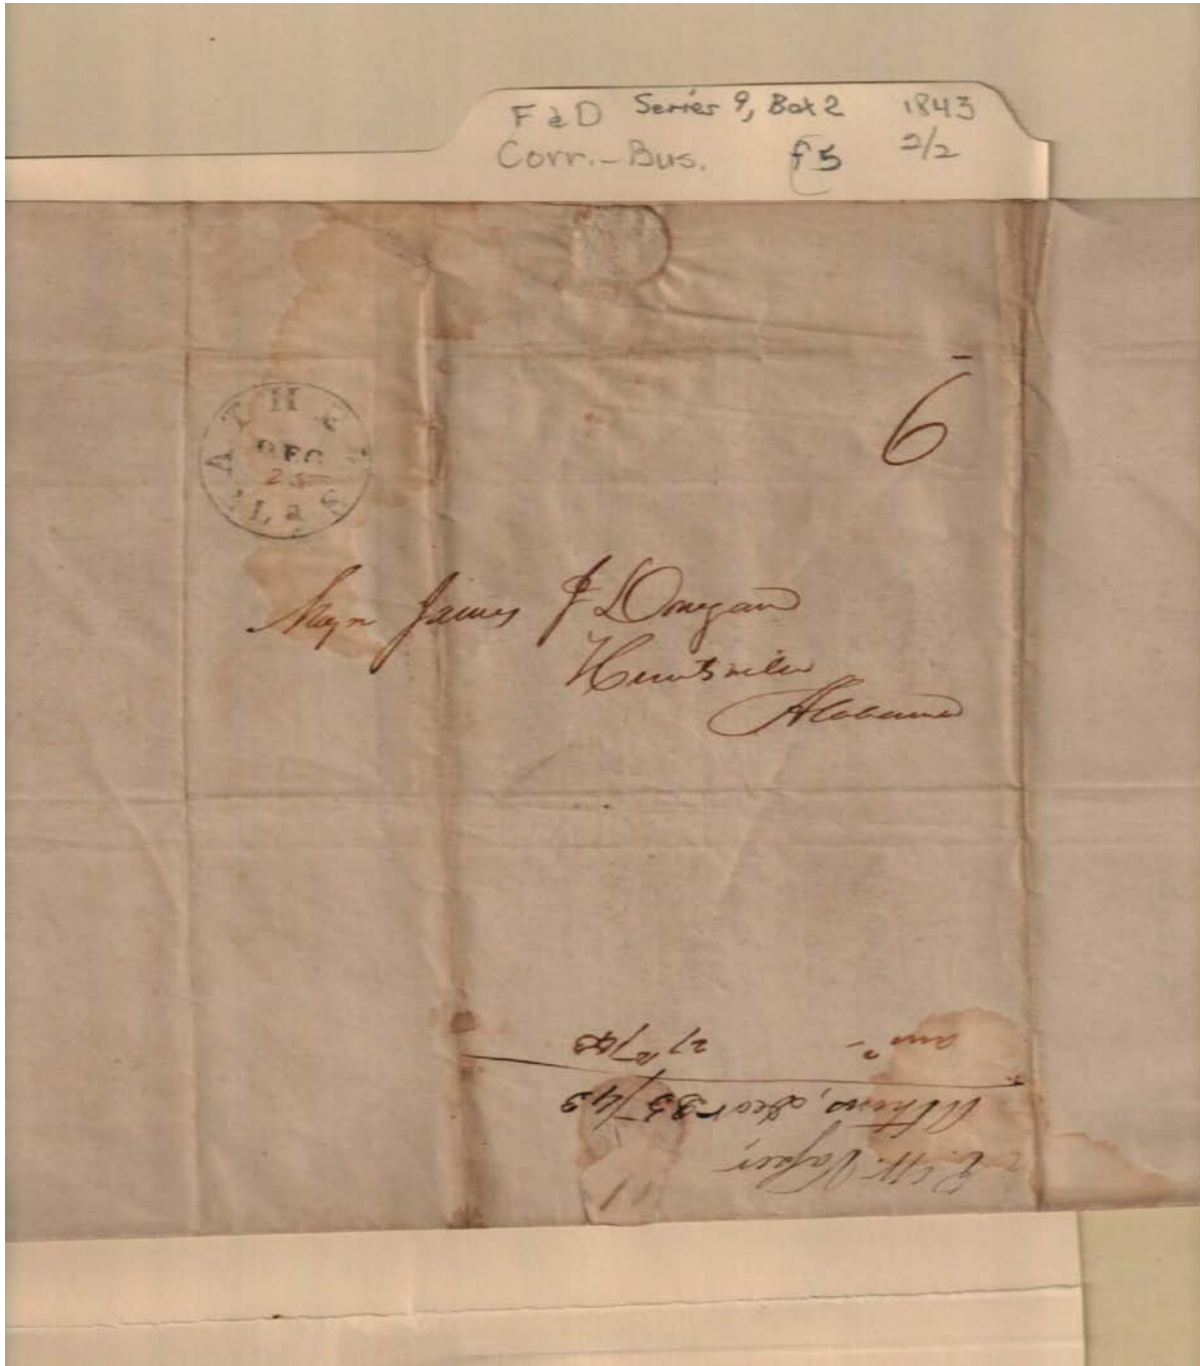 F & D Series 9, Box 2 1843
Corr.-Bus. f5 2/2
ATHENS
DEC
25
ALa
6
Majr James J Donegan
Huntsville
Alabama
Athens, Decr 25/43
ansd 27th/43